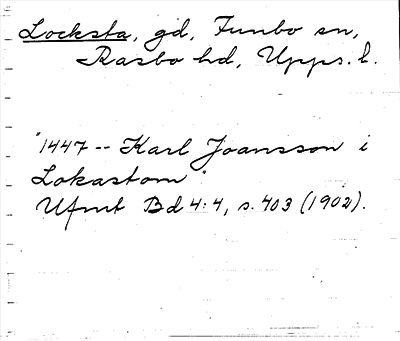 Locksta, gd, Funbo sn,
Rasbo hd, Upps. l.
"1447 -- Karl Joansson i
Lokastom"
Ufmt Bd 4:4, s. 403 (1902).